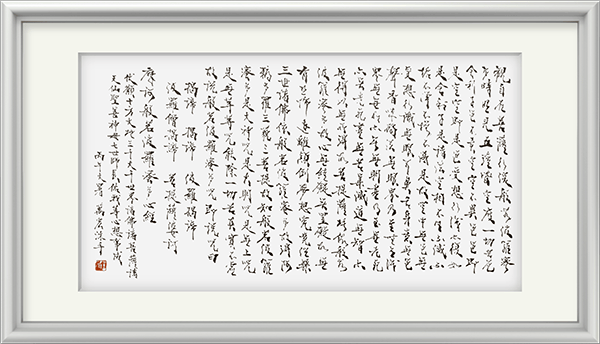 觀自在菩薩行深般若波羅蜜
多時照見五蘊皆空度一切苦厄
舍利子色不異空空不異色色即
是空空即是色受想行識亦復如
是舍利子是諸法空相不生不滅不
垢不淨不增不減是故空中無色無
受想行識無眼耳鼻舌身意無色
聲香味觸法無眼界乃至無意識
界無無明亦無無明盡乃至無老死
亦無老死盡無苦集滅道無智亦
無得以無所得故菩提薩埵依般若
波羅蜜多故心無罣礙無罣礙故無
有恐怖遠離顛倒夢想究竟涅槃
三世諸佛依般若波羅蜜多故得阿
耨多羅三藐三菩提故知般若波羅
蜜多是大神咒是大明咒是無上咒
是無等等咒能除一切苦真實不虛
故說般若波羅蜜多咒即說咒曰
揭諦 揭諦 波羅揭諦
波羅僧揭諦 菩提薩婆訶
摩訶般若波羅蜜多心經
伏願十方大德三千大千世界諸佛諸菩薩諸
天仙聖善神七世師長使我等心想事成